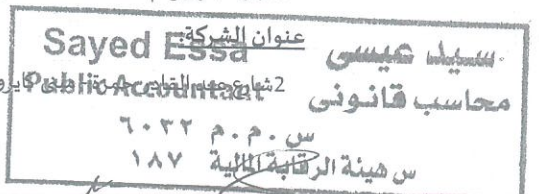 عنوان الشركة:
Sayed Essa سيد عيسى
Public Accountant محاسب قانونى
س . م . م ٦٠٣٢
س هيئة الرقابة المالية ١٨٧